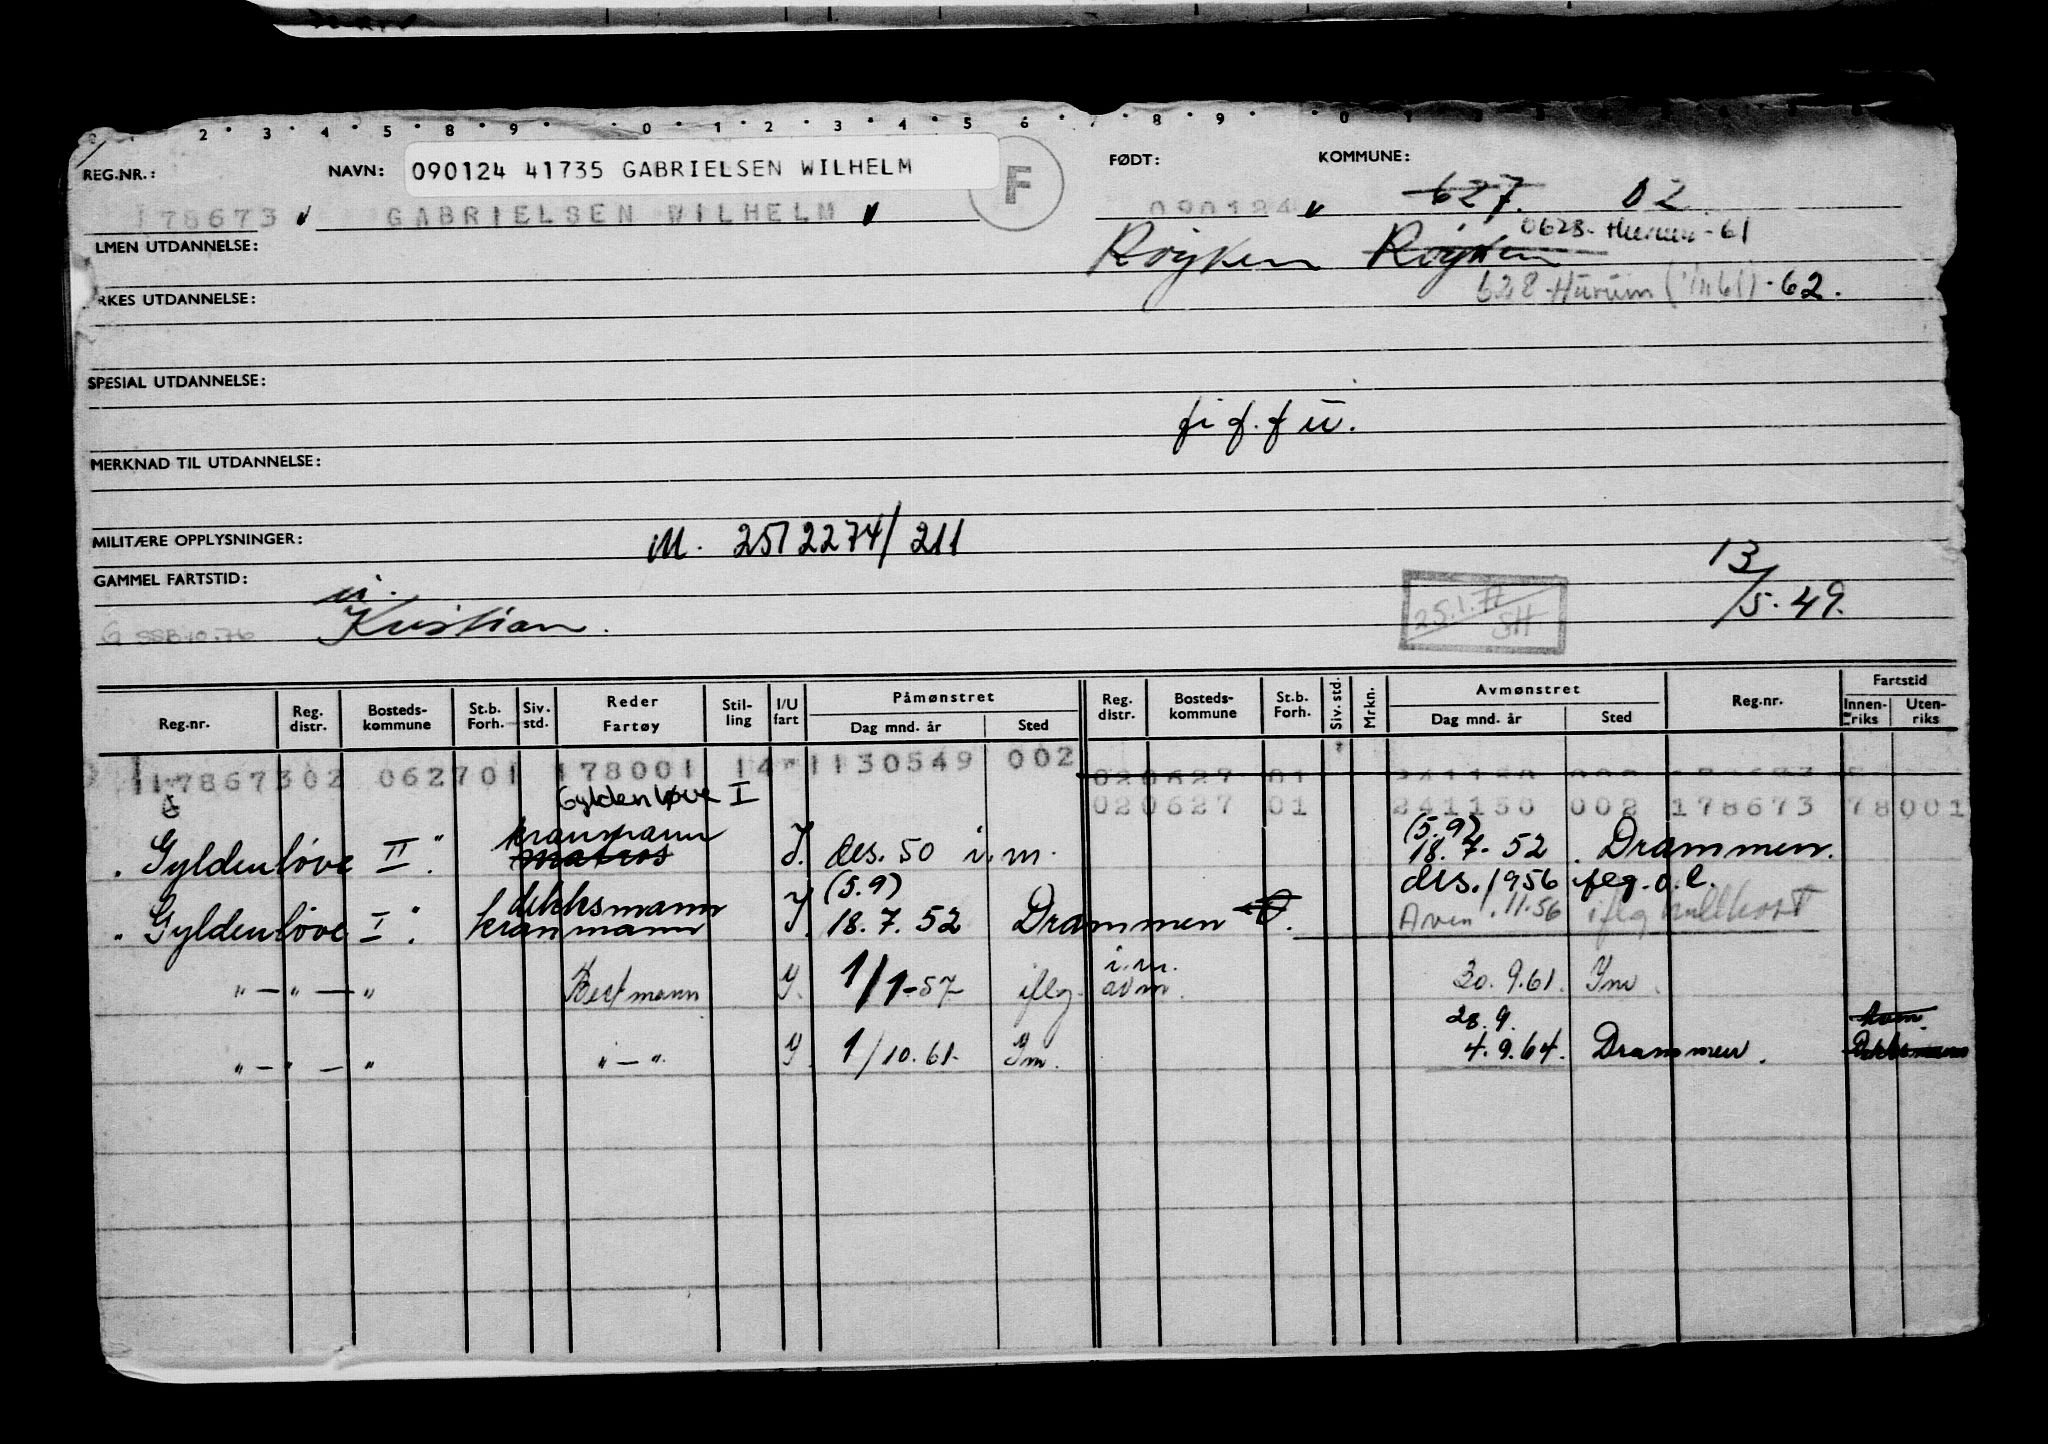 2 · 3 · 4 · 5 · 8 · 9 · 0 · 1 · 2 · 3 · 4 · 5 6 · 7 · 8 · 9 · 0
REG.NR.: NAVN: 090124 41735 GABRIELSEN WILHELM F FØDT: KOMMUNE:
178673 GABRIELSEN WILHELM 090124 627. 02
LMEN UTDANNELSE: Røyken Røyken 0628 - Hurum - 61
RKES UTDANNELSE: 628 - Hurum (1/1161) - 62.
SPESIAL UTDANNELSE:
fi f. f ü.
MERKNAD TIL UTDANNELSE:
MILITÆRE OPPLYSNINGER: M. 2512274/211
GAMMEL FARTSTID: 13/5.49.
G SSB 10.76 Kristian. 25.1.77 SH
Påmønstret Avmønstret Fartstid
Reg.nr. Reg. distr. Bosteds- kommune St.b. Forh. Siv. std. Reder Fartøy Stil- ling I/U fart Dag mnd. år Sted Reg. distr. Bosteds- kommune St.b. Forh. Siv. std. Mrkn. Dag mnd. år Sted Reg.nr. Innen- riks Uten- riks
17867302 062701 178001 14 1130549 002 020627 01 241150 002 178673
Gyldenløve I 020627 01 241150 002 178673 78001
Gyldenløve II". kranmann matros I. des. 50 i.m. (5.9) 18.7.52. Drammen.
des. 1956 iflg. o.l.
Gyldenløve I". dekksmann kranmann I. (5.9) 18.7.52 Drammen Avm .11.56 iflg rullkort
" — " — " Bestmann I. 1/1-57 iflg. i.m. avm. 30.9.61. Im.
" — " — " " — " I. 1/10.61. Im. 28.9. 4.9.64. Drammen. Dekksmann